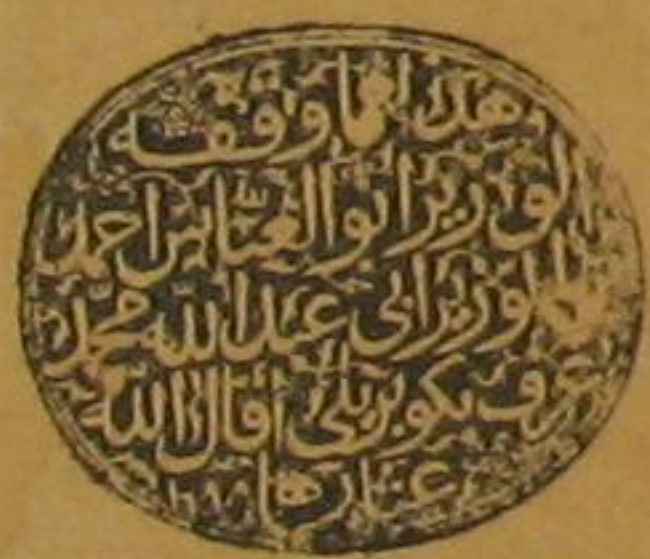 هذا مما وقفه
الوزير ابو العباس احمد
ابن الوزير ابي عبد الله محمد
عرف بكوبريلي أقال الله
عثارهما ١٠٨٨